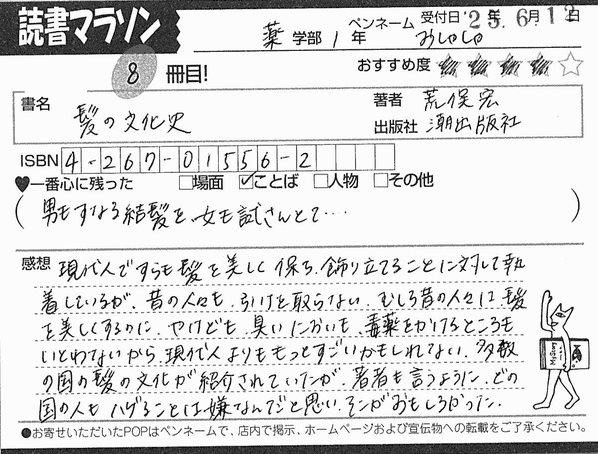 読書マラソン
薬 学部 1 年 ペンネーム おしゅしゅ 受付日 '25.6月12日
8 冊目! おすすめ度 ★★★★☆
書名 髪の文化史
著者 荒俣宏
出版社 潮出版社
ISBN 4-267-01556-2
♥一番心に残った □場面 ☑ことば □人物 □その他
(男もすなる結髪を、女も試さんとて…)
感想 現代人ですらも髪を美しく保ち、飾り立てることに対して執
着しているが、昔の人々も、引けを取らない。むしろ昔の人々は、髪
を美しくするのに、やけども、臭いにおいも、毒薬をかけるところも
いとわないから、現代人よりももっとすごいかもしれない。多数
の国の髪の文化が紹介されていたが、著者も言うように、どの
国の人もハゲることは嫌なんだと思い、そこがおもしろかった。
●お寄せいただいたPOPはペンネームで、店内で掲示、ホームページおよび宣伝物への転載をご了承ください。